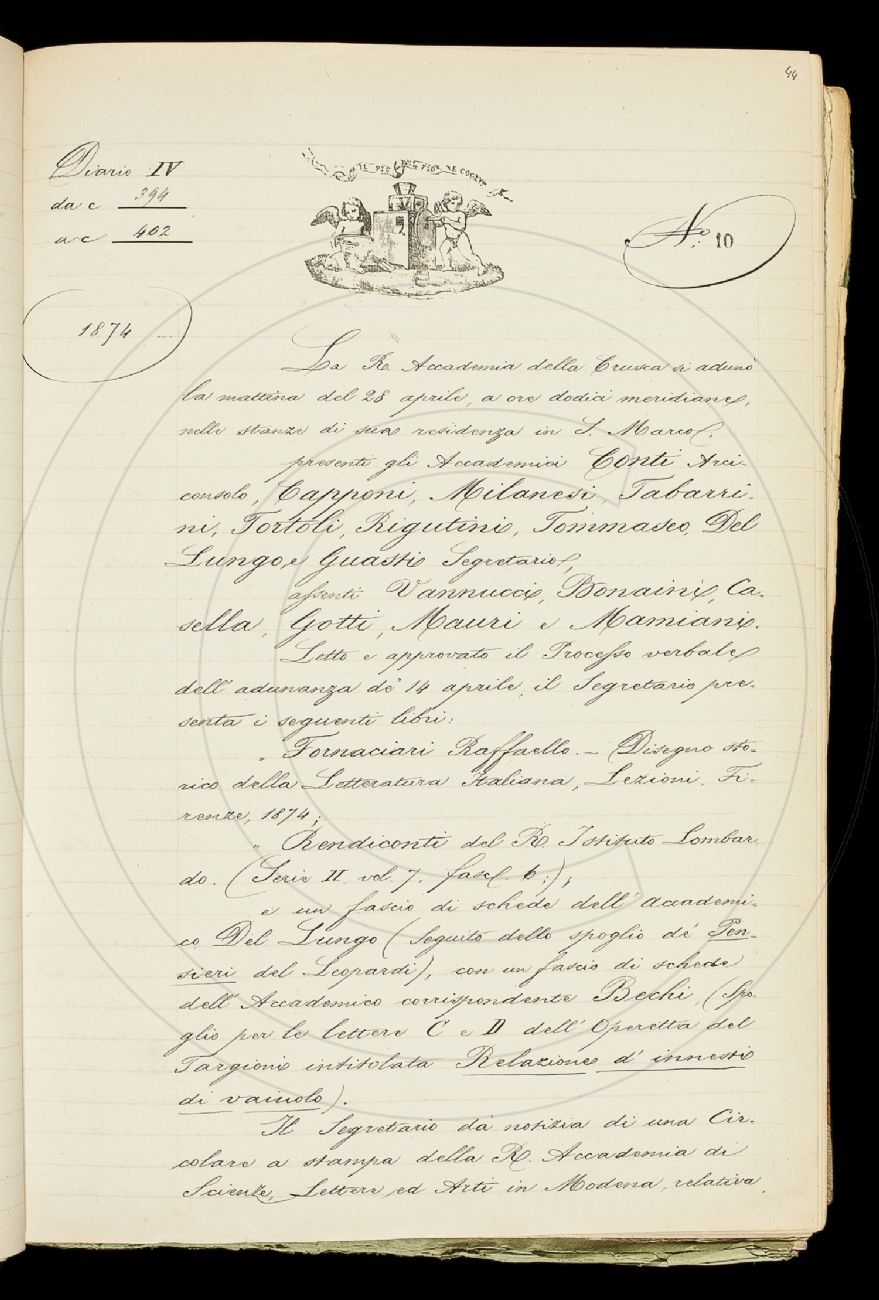 44
Diario IV
da c 394
a c 402
IL PIÙ BEL FIOR NE COGLIE
No: 10
1874
La R. Accademia della Crusca si adunò
la mattina del 28 aprile, a ore dodici meridiane,
nelle stanze di sua residenza in S. Marco;
presenti gli Accademici Conti Arci-
consolo, Capponi, Milanesi, Tabarri-
ni, Tortoli, Rigutini, Tommaseo, Del
Lungo, e Guasti Segretario;
assenti Vannucci, Bonaini, Ca-
sella, Gotti, Mauri e Mamiani.
Letto e approvato il Processo verbale
dell' adunanza de' 14 aprile, il Segretario pre-
senta i seguenti libri:
" Fornaciari Raffaello. – Disegno sto-
rico della Letteratura Italiana, Lezioni. Fi-
renze, 1874;
" Rendiconti del R. Istituto Lombar-
do. (Serie II. vol. 7. fasc. 6:);
e un fascio di schede dell' accademi-
co Del Lungo (Seguito dello spoglio de' Pen-
sieri del Leopardi), con un fascio di schede
dell' Accademico corrispondente Bechi, (Spo-
glio per le lettere C e D dell' Operetta del
Targioni intitolata Relazione d' innesti
di vaiuolo).
Il Segretario dà notizia di una Cir-
colare a stampa della R. Accademia di
Scienze, Lettere ed Arti in Modena, relativa